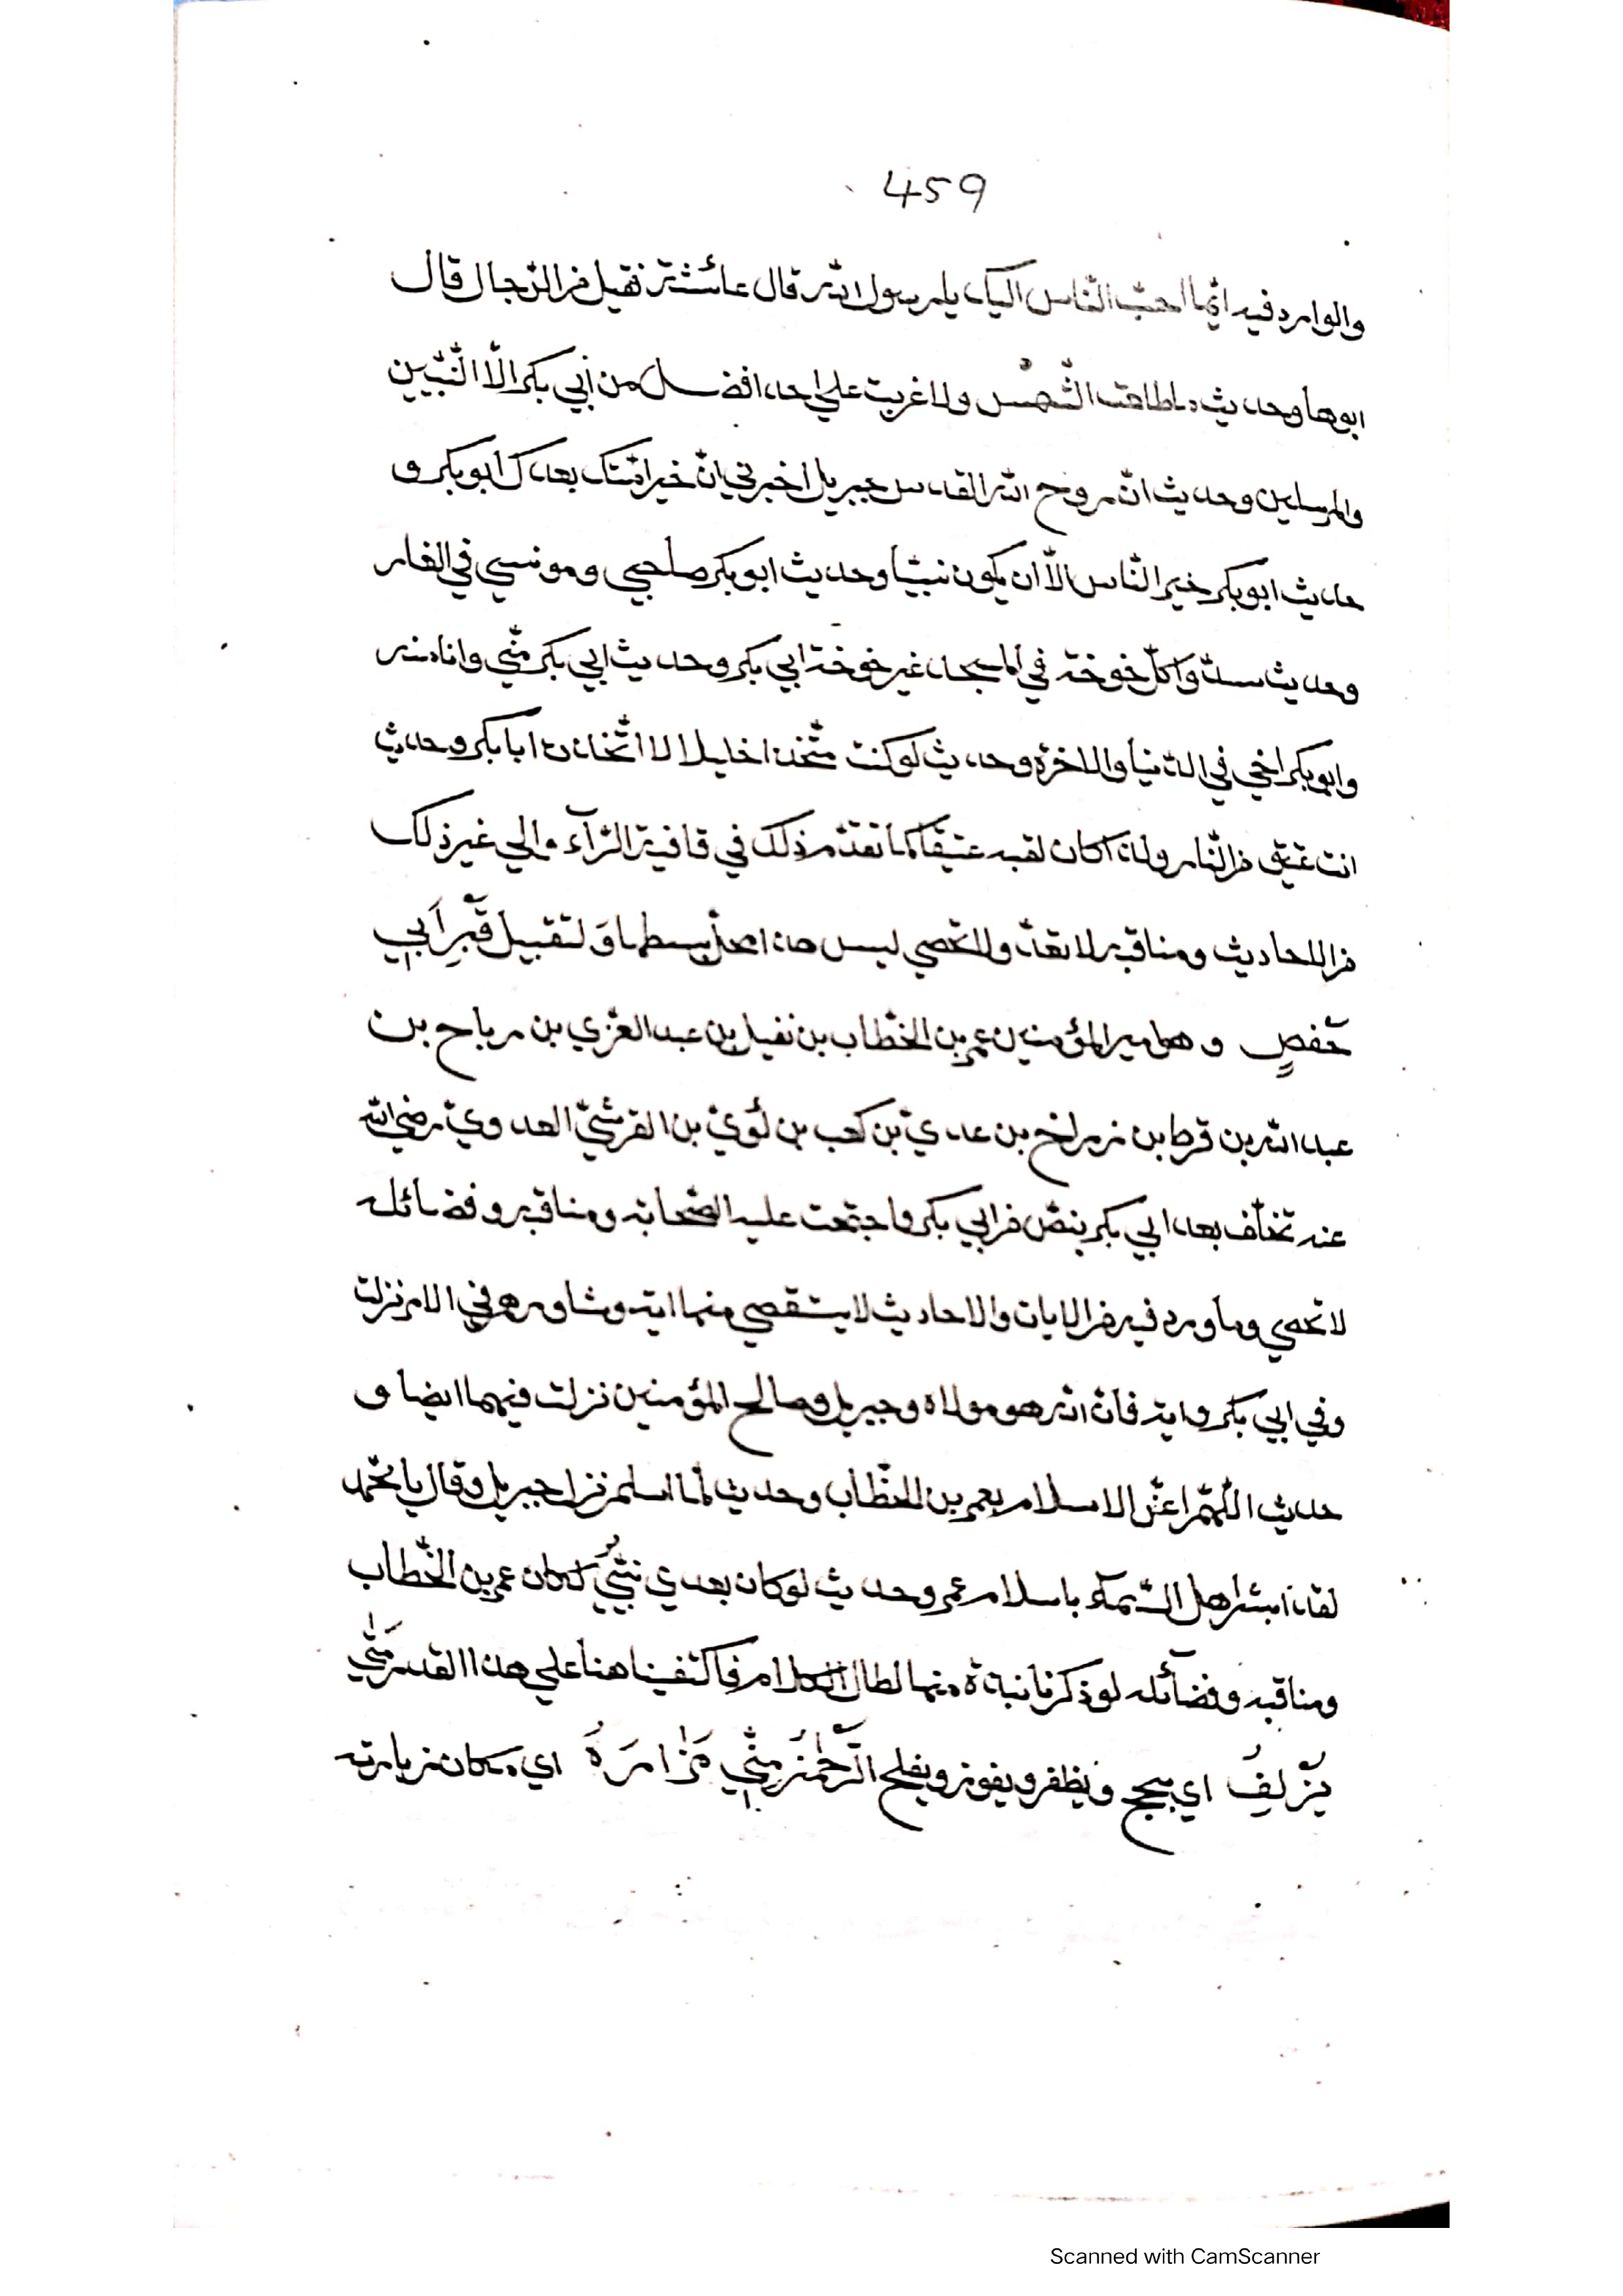 459
والوارد فيه ايّما احبّ النّاس اليك يارسول الله قال عائشة فقيل من الرّجال قال
ابوها وحديث ما طلعت الشّمس ولا غربت علي احد افضل من أبي بكر الّا النّبيّين
والمرسلين وحديث انّ روح الله القدس جبريل اخبرني انّ خير امّتك بعدك ابوبكر و
حديث ابوبكر خير النّاس الّا أن يكون نبيّا وحديث ابوبكر صاحبي ومونسي في الغار
وحديث سدّوا كلّ خوخة في المسجد غير خوخة ابي بكر وحديث ابي بكر منّي وانا منه
وابوبكر اخي في الدّنيا والاخرة وحديث لوكنت متّخذا خليلا لا اتّخذت ابا بكر وحديث
انت عتيق من النّار ولذا كان لقبه عتيقًا كما تقدّم ذلك في قافية الرّآء والي غير ذلك
من الاحاديث ومناقبه لا تعدّ ولا تحصي ليس هذا محلّ بسطها وَ لتقبيل قَبْرِ اَبِي
حَفصٍ وهو امير المؤمنين عمر بن الخطّاب بن نفيل بن عبد العزّي بن رباح بن
عبد الله بن قرط بن زراخ بن عدي بن كعب بن لُؤيّ بن القرشيّ العدويّ رضي الله
عنه تخلّف بعد ابي بكر بنصّ من ابي بكر واجتمعت عليه الصّحابة ومناقبه وفضائله
لا تحصي وما ورد فيه من الايات والاحاديث لا يستقصي منها اية وشاورهم في الامر نزلت
وفي ابي بكر واية فانّ الله هو مولاه وجبريل وصالح المؤمنين نزلت فيهما ايضا و
حديث اللّهمّ اعزّ الاسلام بعمر بن الخطّاب وحديث لمّا اسلم نزل جبريل وقال يا محمّد
لقد ابشر اهل السّمآء باسلام عمر وحديث لوكان بعدي نبيّ لكان عمر بن الخطّاب
ومناقبه وفضآئله لو ذكرنا نبذة منها لطال الكلام فاكتفينا هنا علي هذا القدر مَتٰي
يَزْلِفُ اي ينجح ويظفر ويفوز ويفلح الرّحْمٰنُ مِنِّي مَزَارَهُ اي مكان زيارته
Scanned with CamScanner